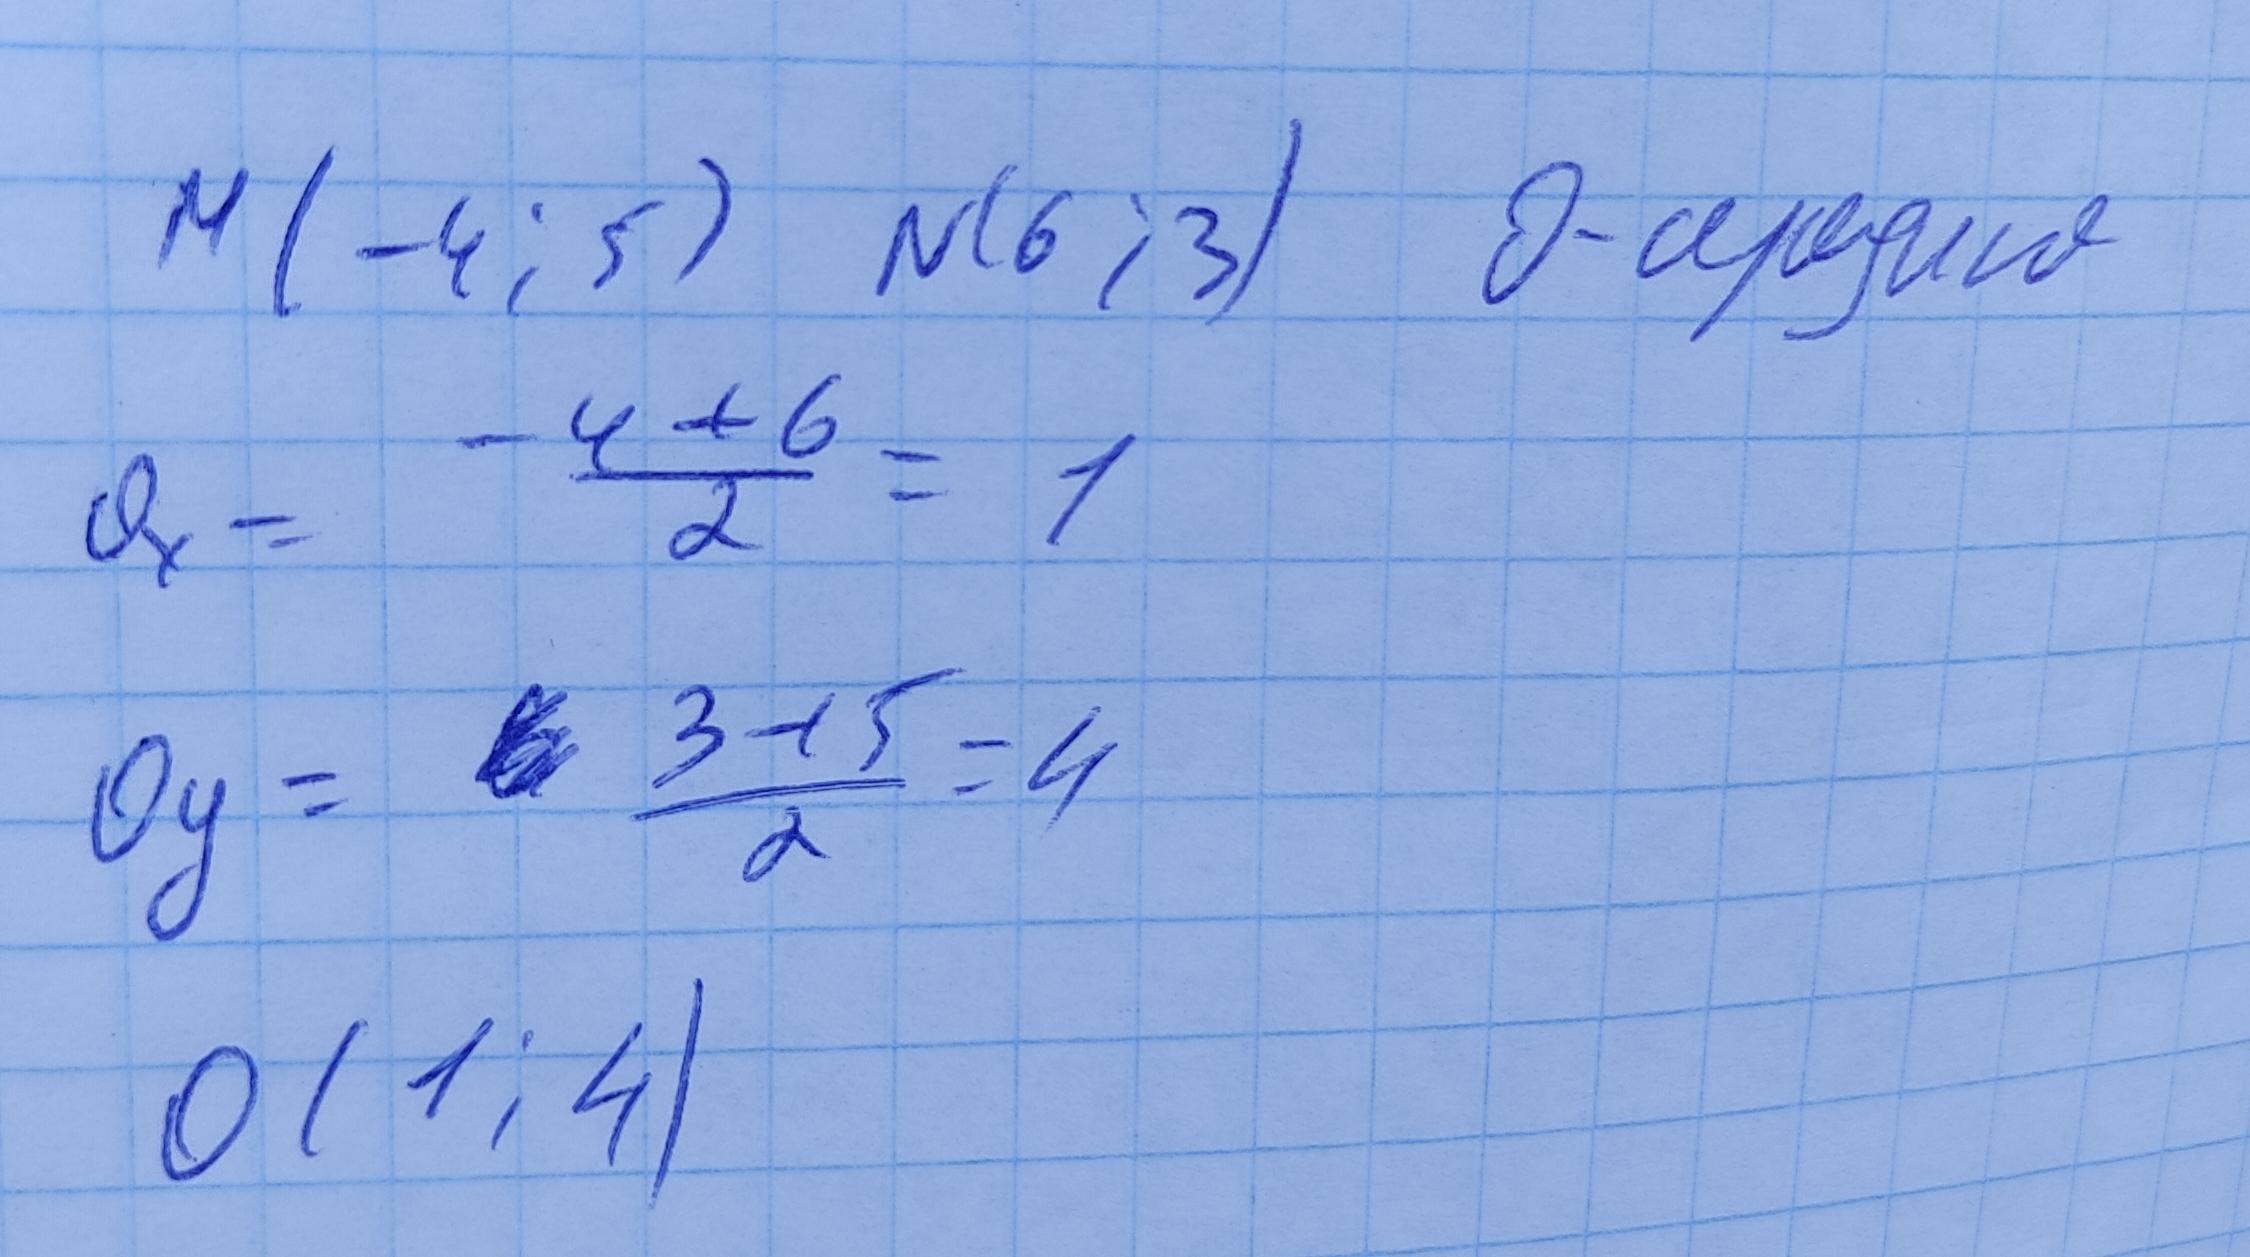 M(-4;5) N(6;3) O-середина
Ox = (-4+6)/2 = 1
Oy = (3+5)/2 = 4
O(1;4)